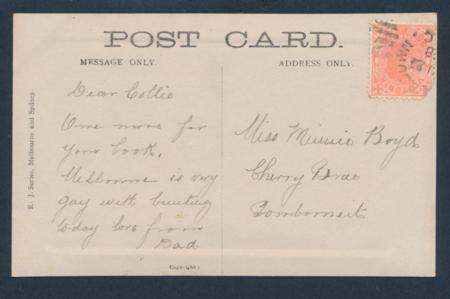 POST CARD.
MESSAGE ONLY.
ADDRESS ONLY.
R. J. Series, Melbourne and Sydney.
Dear Collie
One more for
your book.
Melbourne is very
gay with bunting
today love from
Dad
Miss Minnie Boyd
Cherry Brae
Pomborneit
Copyright